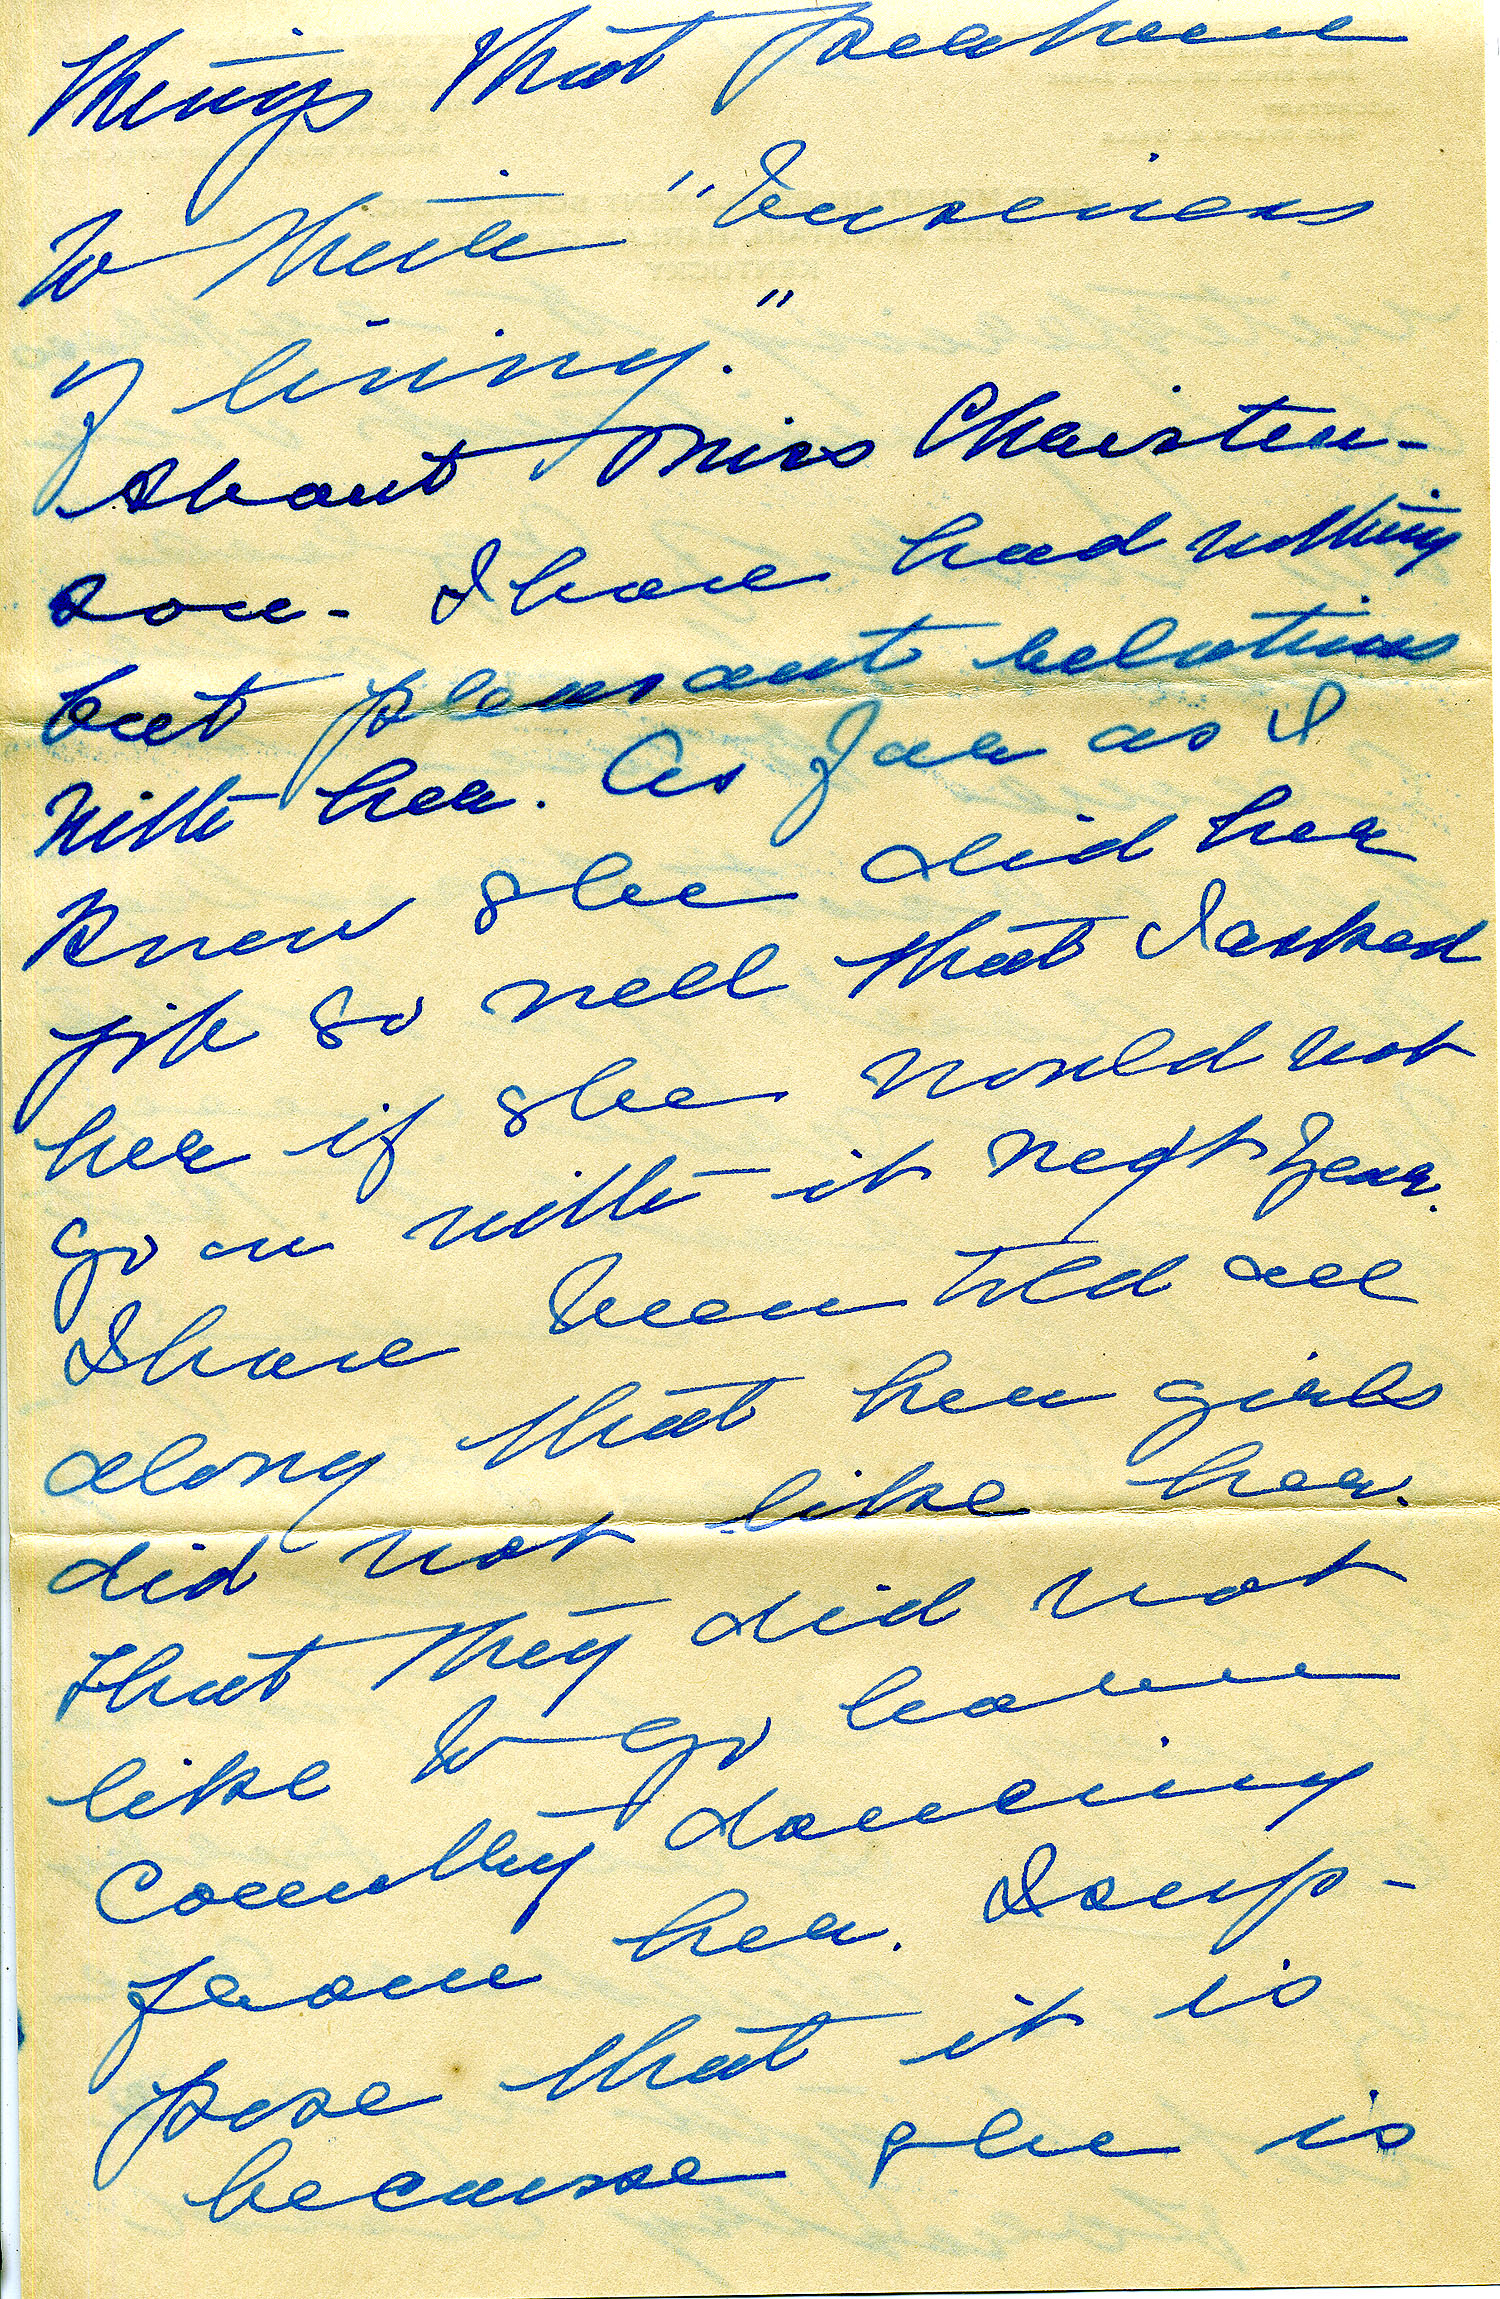 things that pertain
to their "business
of living."
About Miss Christen-
son - I have had nothing
but pleasant relations
with her. As far as I
knew she did her
job so well that I asked
her if she would not
go on with it next year.
I have been told all
along that her girls
did not like her.
That they did not
like to go learn
country dancing
from her. I sup-
pose that it is
because she is